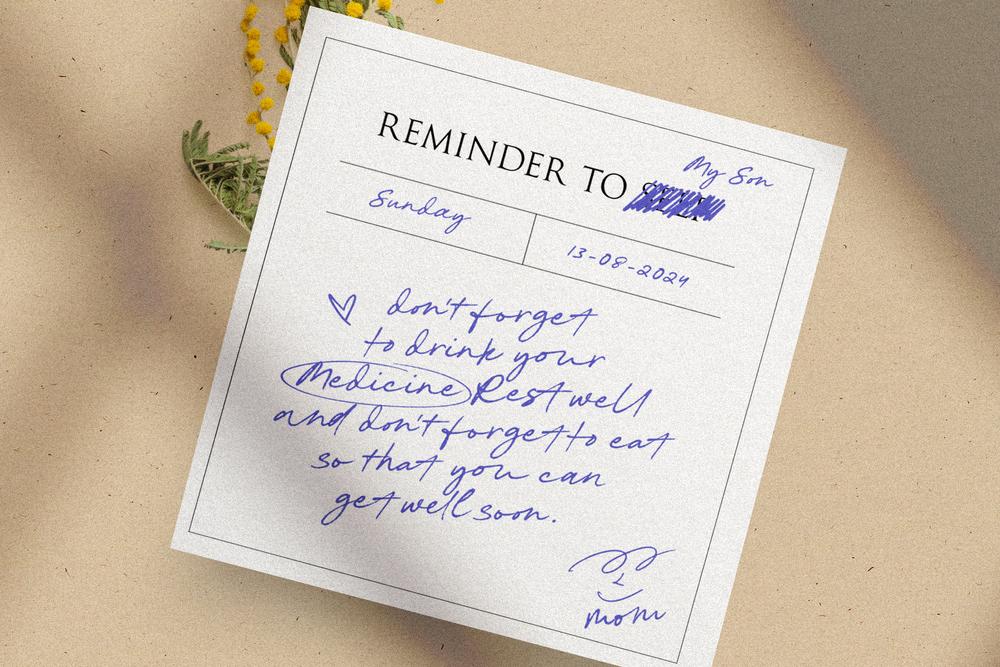 REMINDER TO
My Son
Sunday
13-08-2024
don't forget
to drink your
Medicine Rest well
and don't forget to eat
so that you can
get well soon.
mom